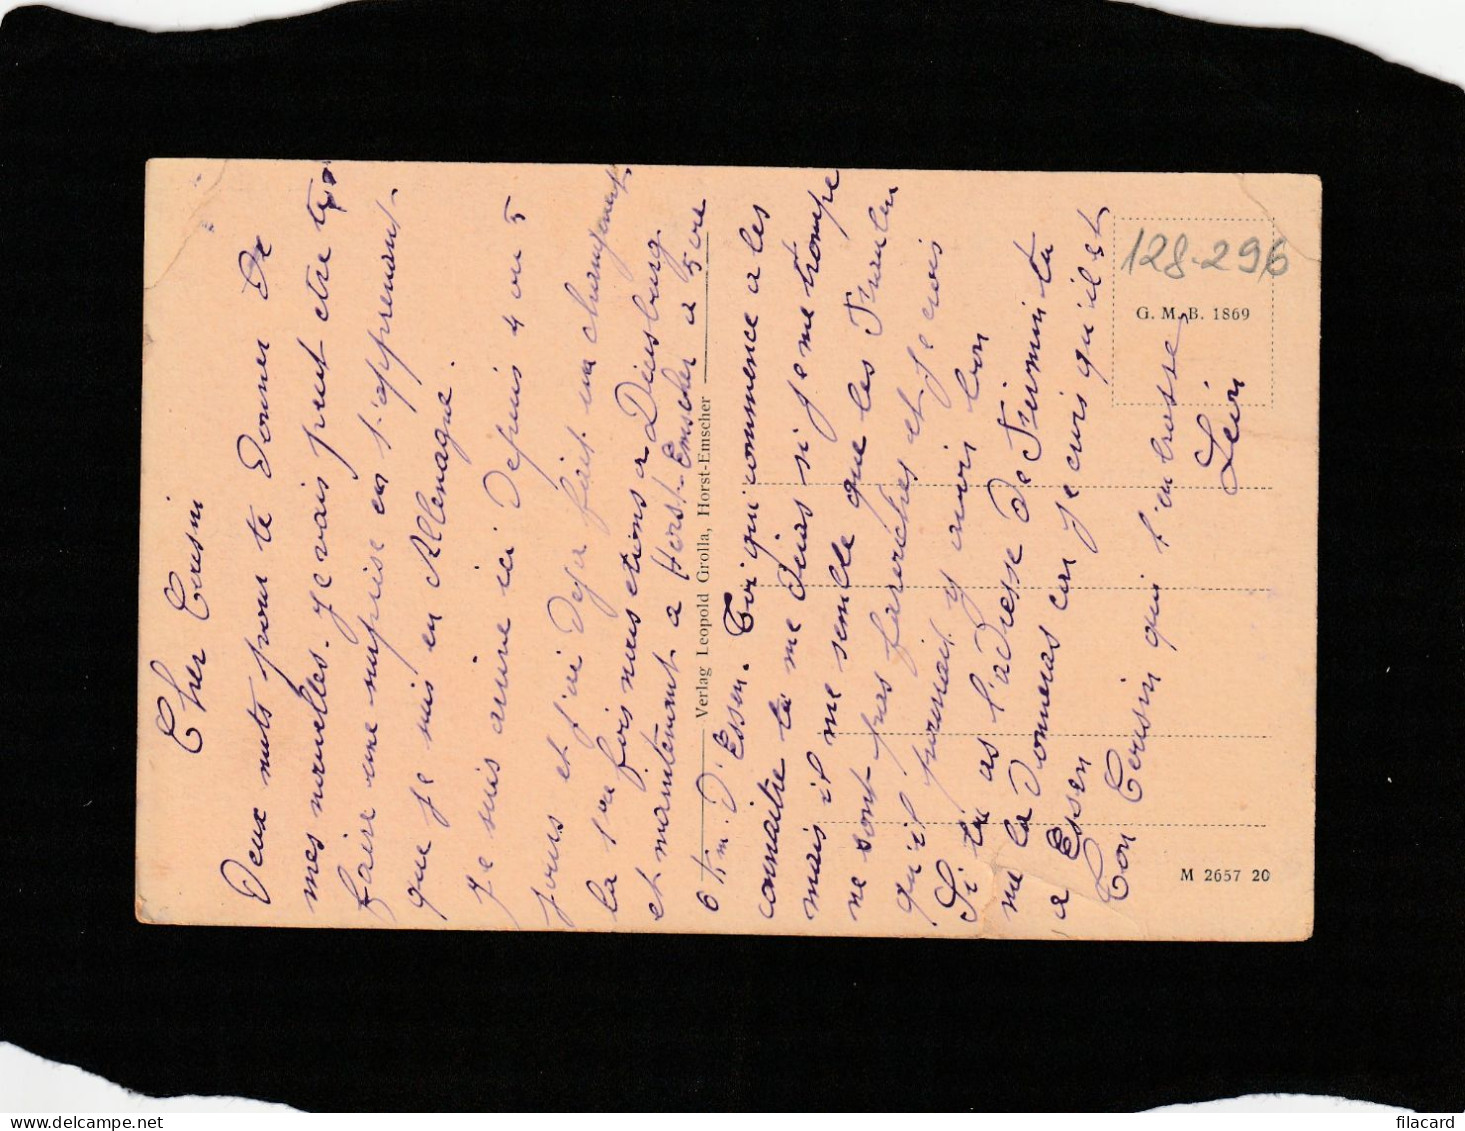 Cher Cousin
Deux mots pour te donner de
mes nouvelles. Je vais peut etre te
faire une surprise en t'apprenant
que je suis en Allemagne.
Je suis arrivé ici depuis 4 ou 5
jours et j'ai deja fait un changement
la 1ere fois nous etions a Duisburg
et maintenant a Horst-Emscher a 5 ou
6 km. d'Essen. Toi qui commence a les
connaitre tu me diras si je me trompe
mais il me semble que les Fraulein
ne sont pas farouches et je crois
qu'il pourrait y avoir bon
Si tu as l'adresse de Firmin tu
me la donneras car je crois qu'il est
a Essen
Ton Cousin qui t'embrasse
Verlag Leopold Grolla, Horst-Emscher
128-296
G. M. B. 1869
M 2657 20